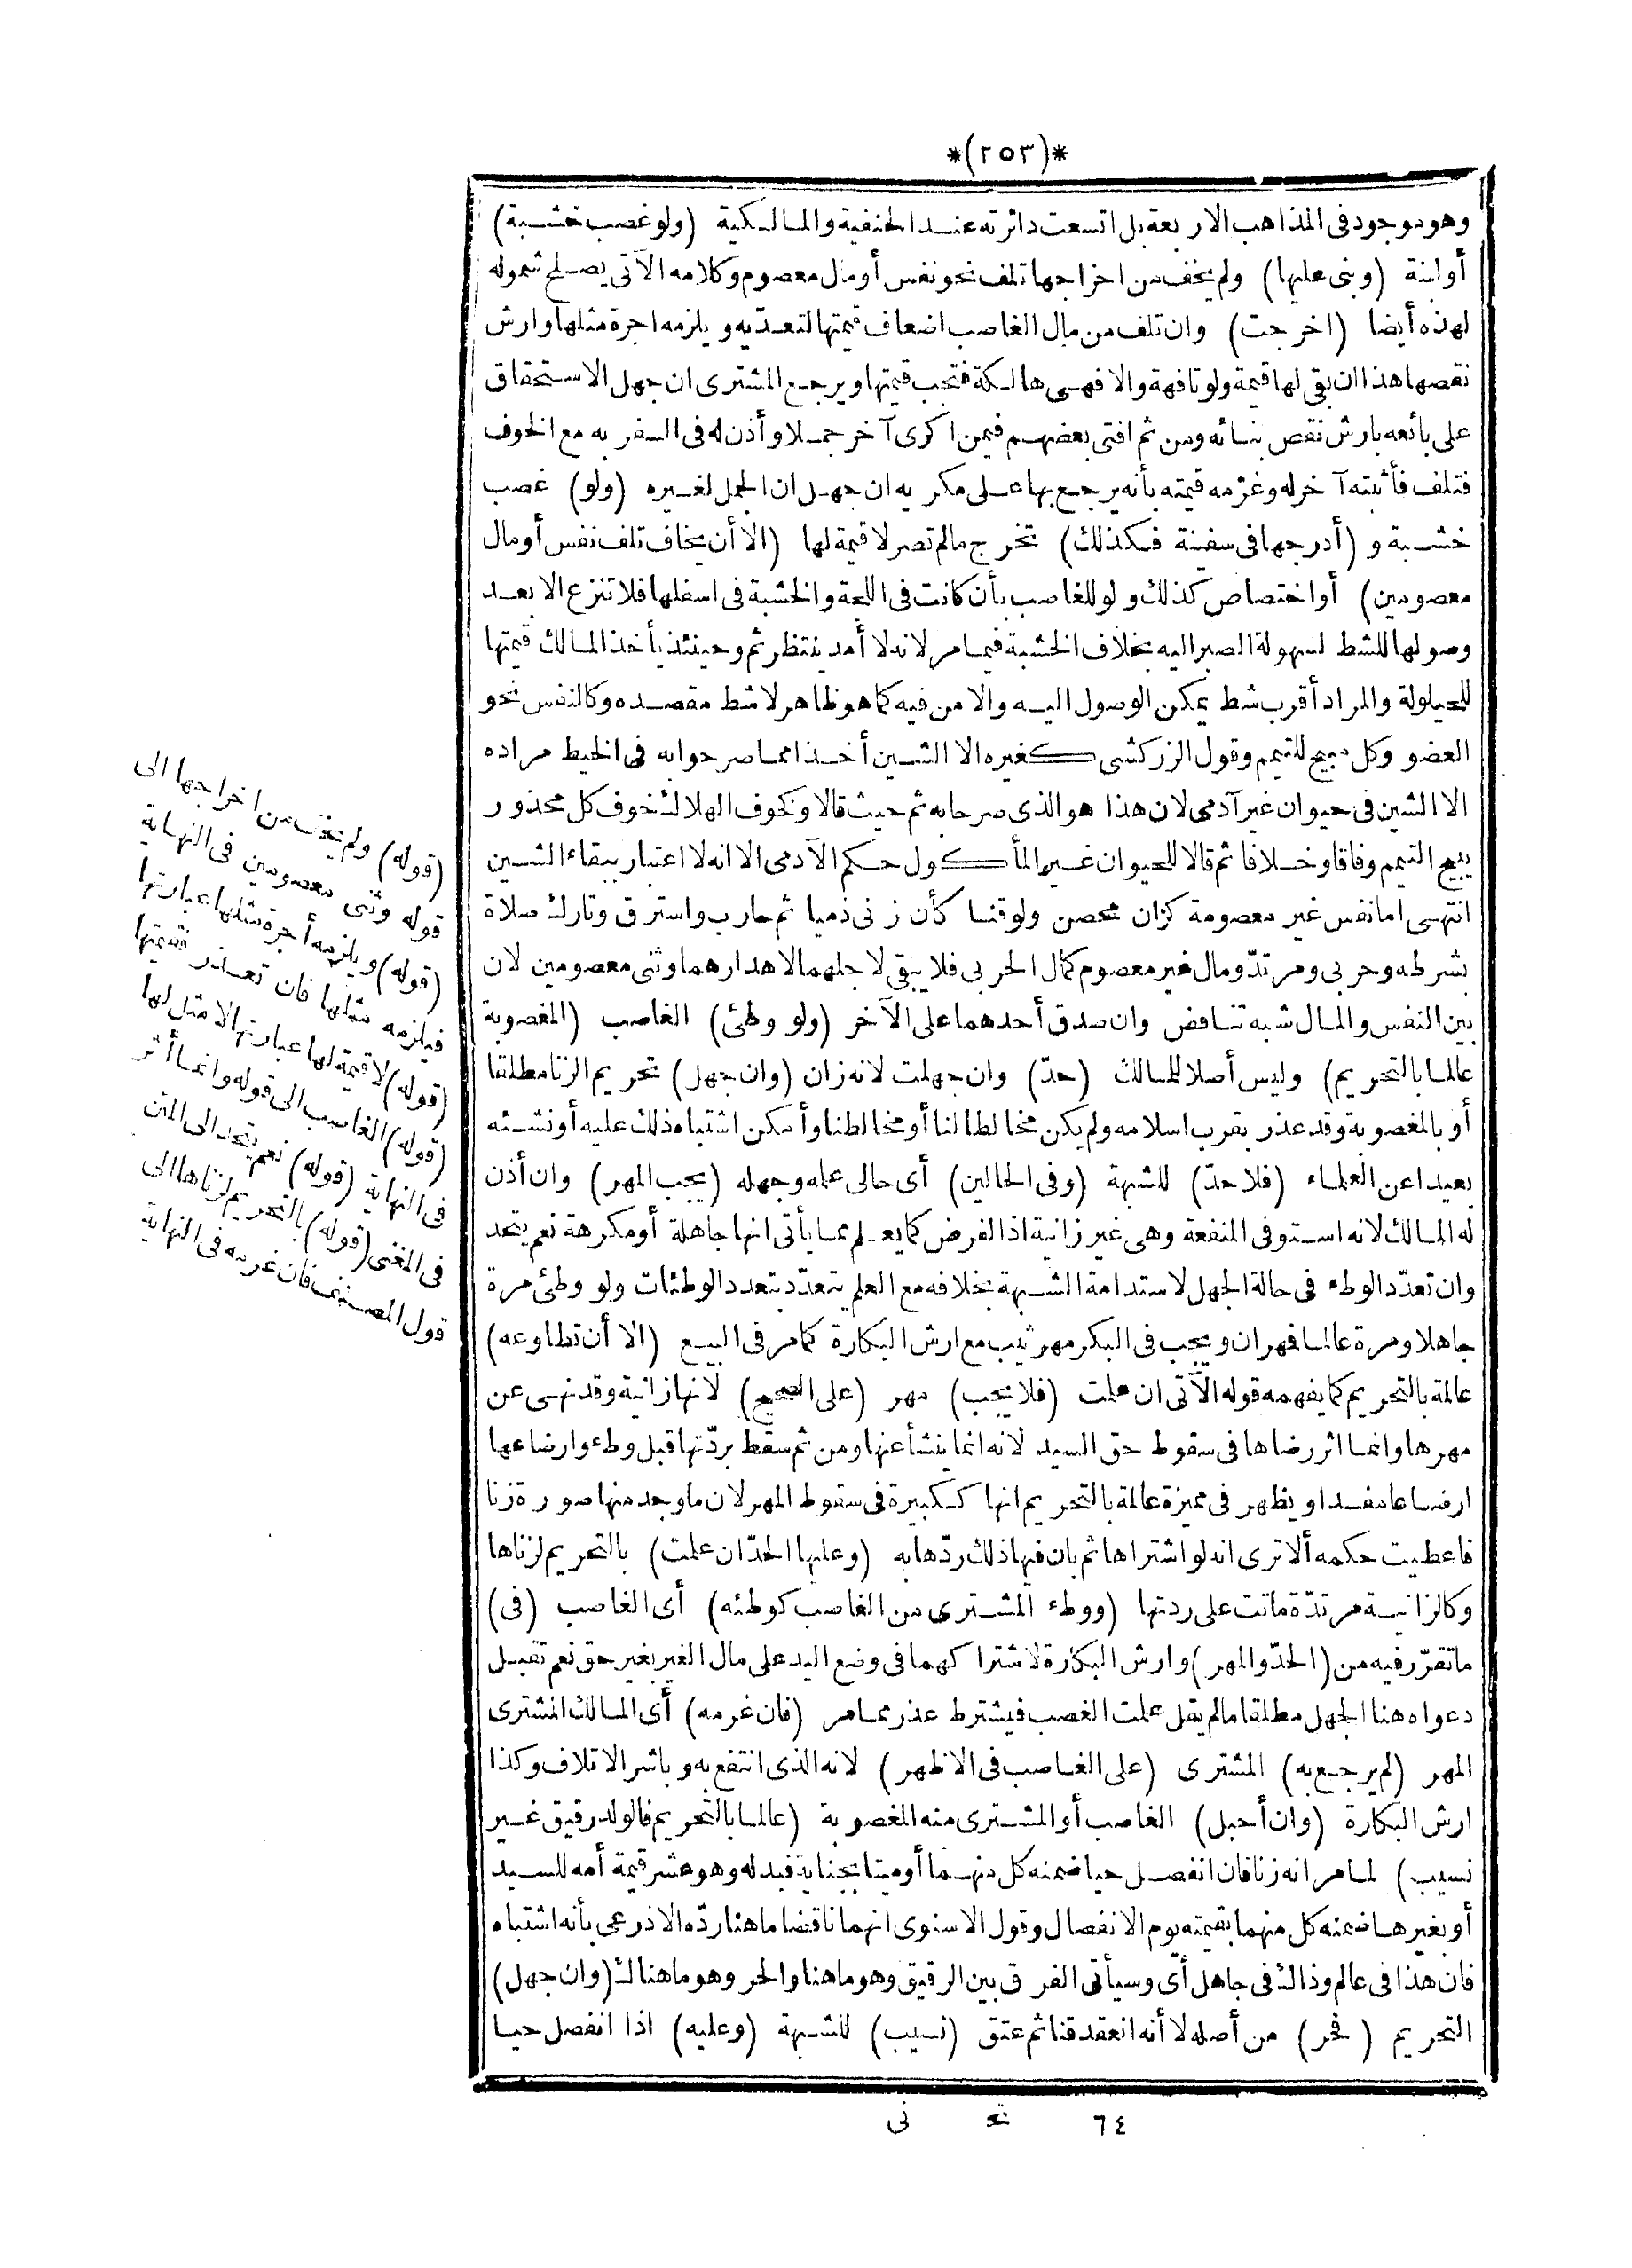 *(٢٥٣)*
وهو موجود فى المذاهب الاربعة بل اتسعت دائرته عند الحنفية والمالكية (ولو غصب خشبة)
أو لبنة (وبنى عليها) ولم يخف من اخراجها تلف نحو نفس أو مال معصوم وكلامه الآتى يصلح شموله
لهذه أيضا (اخرجت) وان تلف من مال الغاصب اضعاف قيمتها لتعدّيه ويلزمه اجرة مثلها وارش
نقصها هذا ان بقى لها قيمة ولو تافهة والا فهى هالكة فتجب قيمتها ويرجع المشترى ان جهل الاستحقاق
على بائعه بارش نقص بنائه ومن ثم افتى بعضهم فيمن اكرى آخر جملا وأذن له فى السفر به مع الخوف
فتلف فأثبته آخر له وغرّمه قيمته بأنه يرجع بها على مكريه ان جهل ان الجمل لغيره (ولو) غصب
خشبة و (أدرجها فى سفينة فكذلك) تخرج مالم تصر لا قيمة لها (الا أن يخاف تلف نفس أو مال
معصومين) أو اختصاص كذلك ولو للغاصب بأن كانت فى اللجة والخشبة فى اسفلها فلا تنزع الا بعد
وصولها للشط لسهولة الصبر اليه بخلاف الخشبة فيما مر لانه لا أمد ينتظر ثم وحينئذ يأخذ المالك قيمتها
للحيلولة والمراد أقرب شط يمكن الوصول اليه والامن فيه كما هو ظاهر لا شط مقصده وكالنفس نحو
العضو وكل مبيح للتيمم وقول الزركشى كغيره الا الشين أخذا مما صرحوا به فى الخيط مراده
الا الشين فى حيوان غير آدمى لان هذا هو الذى صرحا به ثم حيث قالا وكخوف الهلاك خوف كل محذور
يبيح التيمم وفاقا وخلافا ثم قالا للحيوان غير المأكول حكم الآدمى الا انه لا اعتبار ببقاء الشين
انتهى اما نفس غير معصومة كزان محصن ولو قنا كأن زنى ذميا ثم حارب واسترق وتارك صلاة
بشرطه وحربى ومرتدّ ومال غير معصوم كمال الحربى فلا يبقى لاجلهما لاهدارهما وثنى معصومين لان
بين النفس والمال شبه تناقض وان صدق أحدهما على الآخر (ولو وطئ) الغاصب (المغصوبة
عالما بالتحريم) وليس أصلا للمالك (حدّ) وان جهلت لانه زان (وان جهل) تحريم الزنا مطلقا
أو بالمغصوبة وقد عذر بقرب اسلامه ولم يكن مخالطا لنا أو مخالطنا وأمكن اشتباه ذلك عليه أو نشئه
بعيدا عن العلماء (فلا حدّ) للشبهة (وفى الحالين) أى حالى علمه وجهله (يجب المهر) وان أذن
له المالك لانه استوفى المنفعة وهى غير زانية اذ الفرض كما يعلم مما يأتى انها جاهلة أو مكرهة نعم يتحد
وان تعدّد الوطء فى حالة الجهل لاستدامة الشبهة بخلافه مع العلم يتعدّد بتعدد الوطئات ولو وطئ مرة
جاهلا ومرة عالما فمهران ويجب فى البكر مهر ثيب مع ارش البكارة كما مر فى البيع (الا أن تطاوعه)
عالمة بالتحريم كما يفهمه قوله الآتى ان علمت (فلا يجب) مهر (على الصحيح) لانها زانية وقد نهى عن
مهرها وانما اثر رضاها فى سقوط حق السيد لانه انما ينشأ عنها ومن ثم سقط بردّتها قبل وطء وارضاعها
ارضاعا مفسدا ويظهر فى مميزة عالمة بالتحريم انها ككبيرة فى سقوط المهر لان ما وجد منها صورة زنا
فاعطيت حكمه ألا ترى انه لو اشتراها ثم بان فيها ذلك ردّها به (وعليها الحدّ ان علمت) بالتحريم لزناها
وكالزانية مرتدّة ماتت على ردتها (ووطء المشترى من الغاصب كوطئه) أى الغاصب (فى)
ما تقرّر فيه من (الحدّ والمهر) وارش البكارة لاشتراكهما فى وضع اليد على مال الغير بغير حق نعم تقبل
دعواه هنا الجهل مطلقا مالم يقل علمت الغصب فيشترط عذر مما مر (فان غرمه) أى المالك المشترى
المهر (لم يرجع به) المشترى (على الغاصب فى الاظهر) لانه الذى انتفع به وباشر الاتلاف وكذا
ارش البكارة (وان أحبل) الغاصب أو المشترى منه المغصوبة (عالما بالتحريم فالولد رقيق غير
نسيب) لما مر انه زنا فان انفصل حيا ضمنه كل منهما أو ميتا بجناية فبدله وهو عشر قيمة أمه للسيد
أو بغيرها ضمنه كل منهما بقيمته يوم الانفصال وقول الاسنوى انهما ناقضا ما هنا ردّه الاذرعى بأنه اشتباه
فان هذا فى عالم وذاك فى جاهل أى وسيأتى الفرق بين الرقيق وهو ما هنا والحر وهو ما هناك (وان جهل)
التحريم (فحر) من أصله لا أنه انعقد قنا ثم عتق (نسيب) للشبهة (وعليه) اذا انفصل حيا
(قوله) ولم يخف من اخراجها الى
قوله وثنى معصومين فى النهاية
(قوله) ويلزمه أجرة مثلها عبارتها
فيلزمه مثلها فان تعذر فقيمتها
(قوله) لا قيمة لها عبارتها لا مثل لها
(قوله) الغاصب الى قوله وانما أثر
فى النهاية (قوله) نعم يتحد الى المتن
فى المغنى (قوله) بالتحريم لزناها الى
قول المصنف فان غرمه فى النهاية
٦٤ تح نى